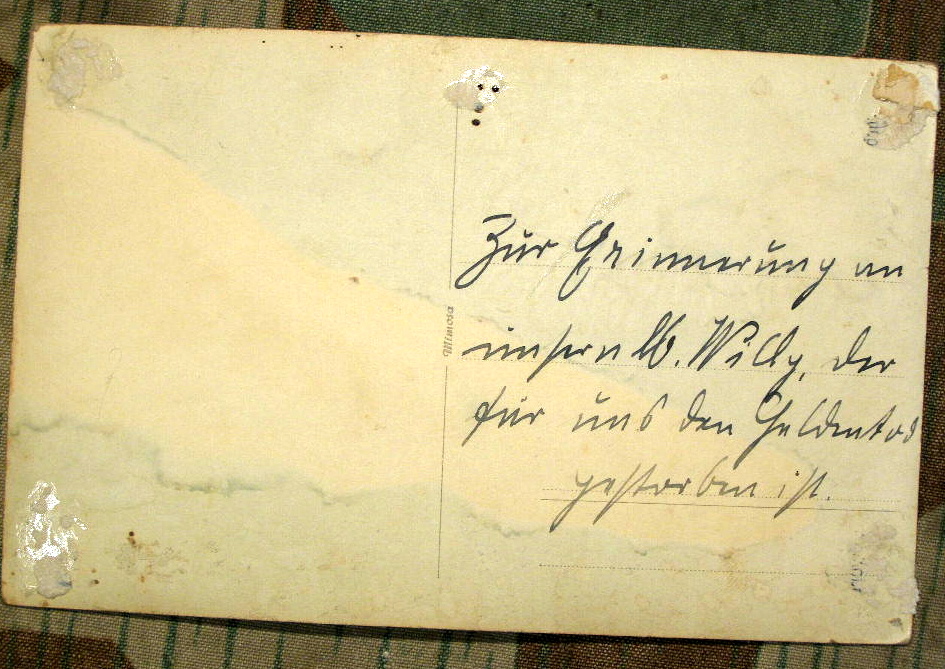 Mimosa
Zur Erinnerung an
unsern lb. Willy, der
für uns den Heldentod
gestorben ist.